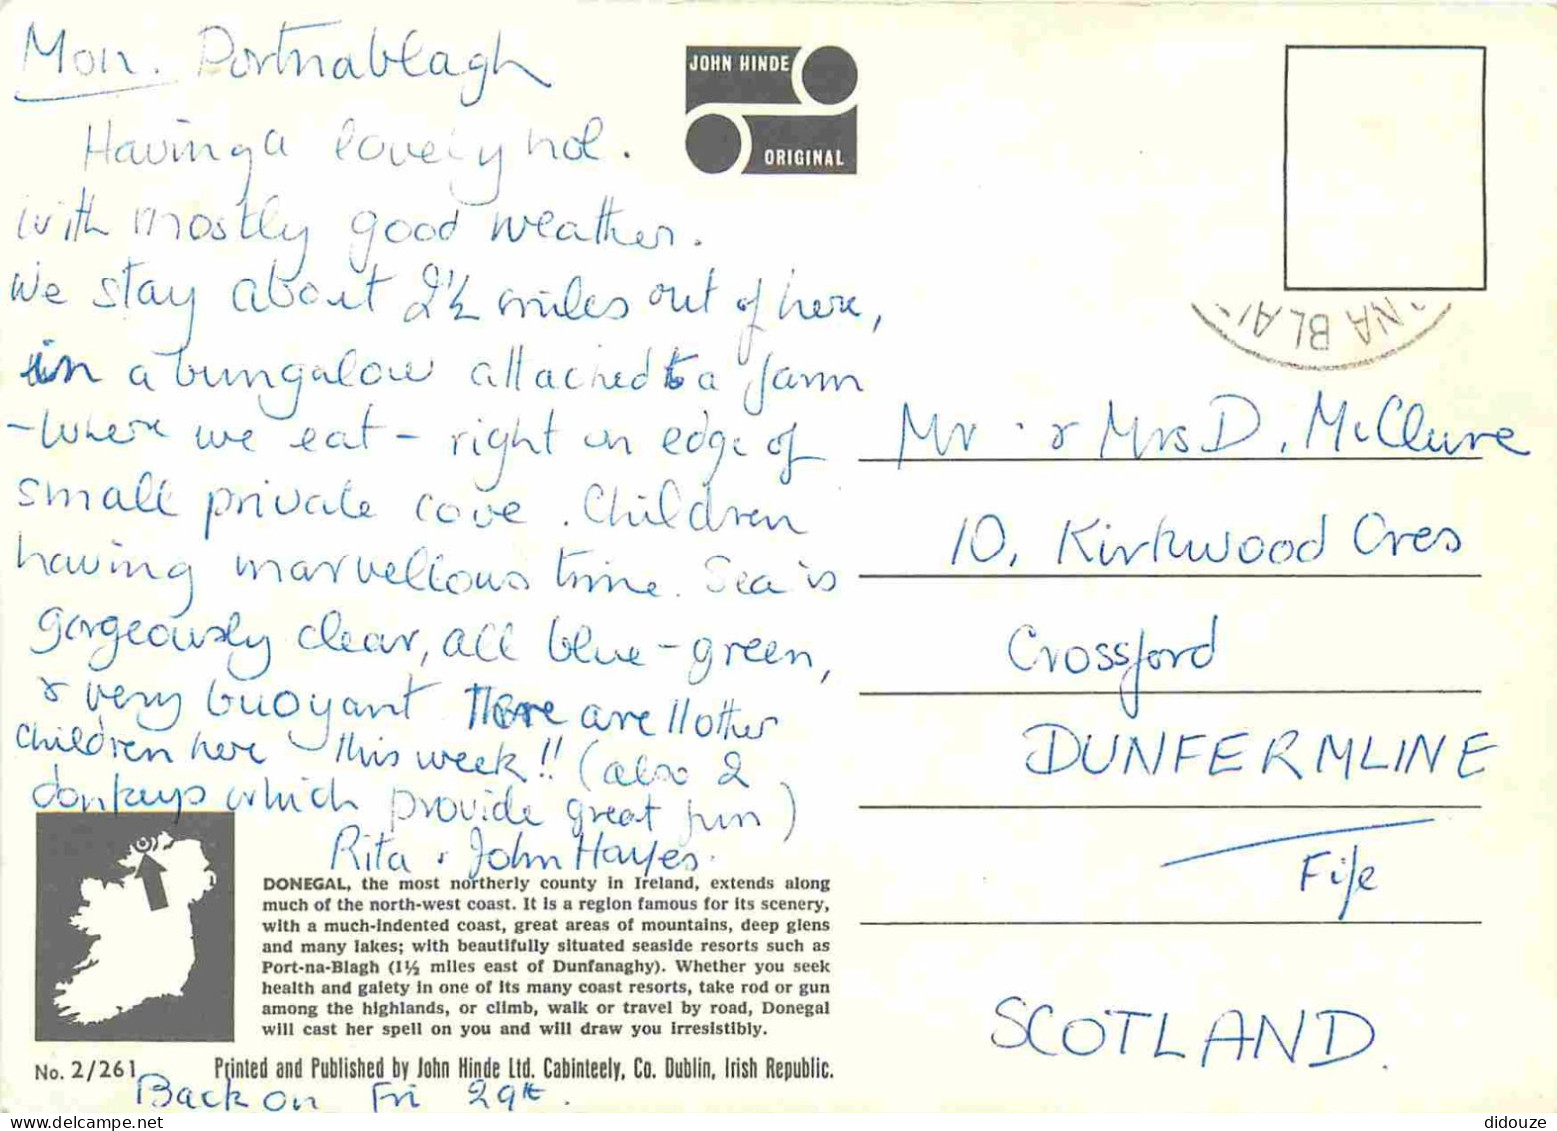 Mon. Portnablagh
Having a lovely hol.
with mostly good weather.
We stay about 2½ miles out of here,
in a bungalow attached to a farm
- where we eat - right on edge of
small private cove. Children
having marvellous time. Sea is
gorgeously clear, all blue-green,
& very buoyant There are 11 other
children here this week!! (also 2
donkeys which provide great fun)
Rita & John Hayes.
JOHN HINDE
ORIGINAL
NA BLA
Mr. & Mrs D. McClure
10, Kirkwood Cres
Crossford
DUNFERMLINE
Fife
SCOTLAND.
DONEGAL, the most northerly county in Ireland, extends along
much of the north-west coast. It is a region famous for its scenery,
with a much-indented coast, great areas of mountains, deep glens
and many lakes; with beautifully situated seaside resorts such as
Port-na-Blagh (1½ miles east of Dunfanaghy). Whether you seek
health and gaiety in one of its many coast resorts, take rod or gun
among the highlands, or climb, walk or travel by road, Donegal
will cast her spell on you and will draw you irresistibly.
No. 2/261
Printed and Published by John Hinde Ltd. Cabinteely, Co. Dublin, Irish Republic.
Back on Fri 29th.
didouze